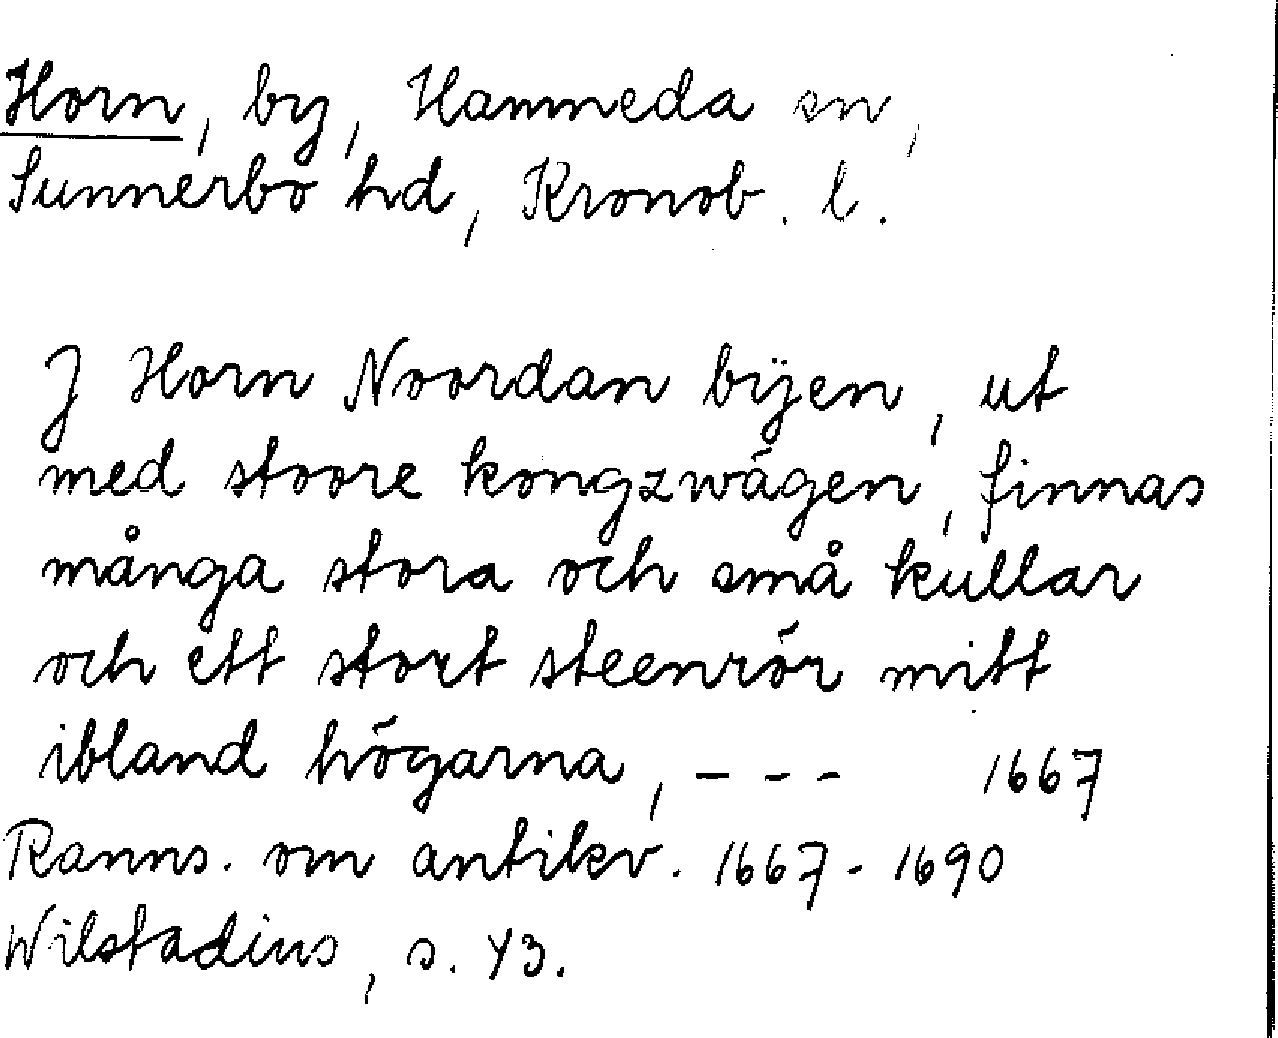 Horn, by, Hammeda sn,
Sunnerbo hd, Kronob. l.
J Horn Noordan bÿen, ut
med stoore kongzwägen, finnas
många stora och små kullar
och ett stort steenrör mitt
ibland högarna, - - - 1667
Ranns. om antikv. 1667-1690
Wilstadius, s. 43.